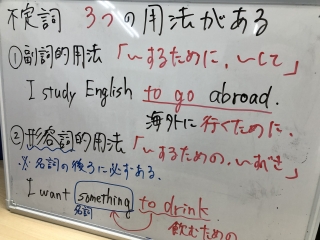 不定詞 3つの用法がある
①副詞的用法「〜するために、〜して」
I study English to go abroad.
海外に行くために.
②形容詞的用法「〜するための、〜べき」
※名詞の後ろに必ずある.
I want something to drink
名詞
飲むための